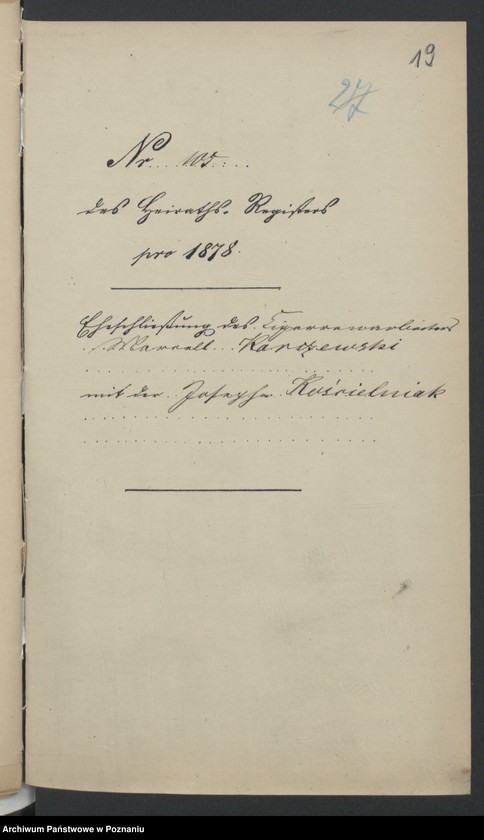 19
27
Nr. 105.
des Heiraths-Registers
pro 1878.
Eheschließung des Cigarrenarbeiters
Marcell Karczewski
mit der Josepha Kościelniak
Archiwum Państwowe w Poznaniu